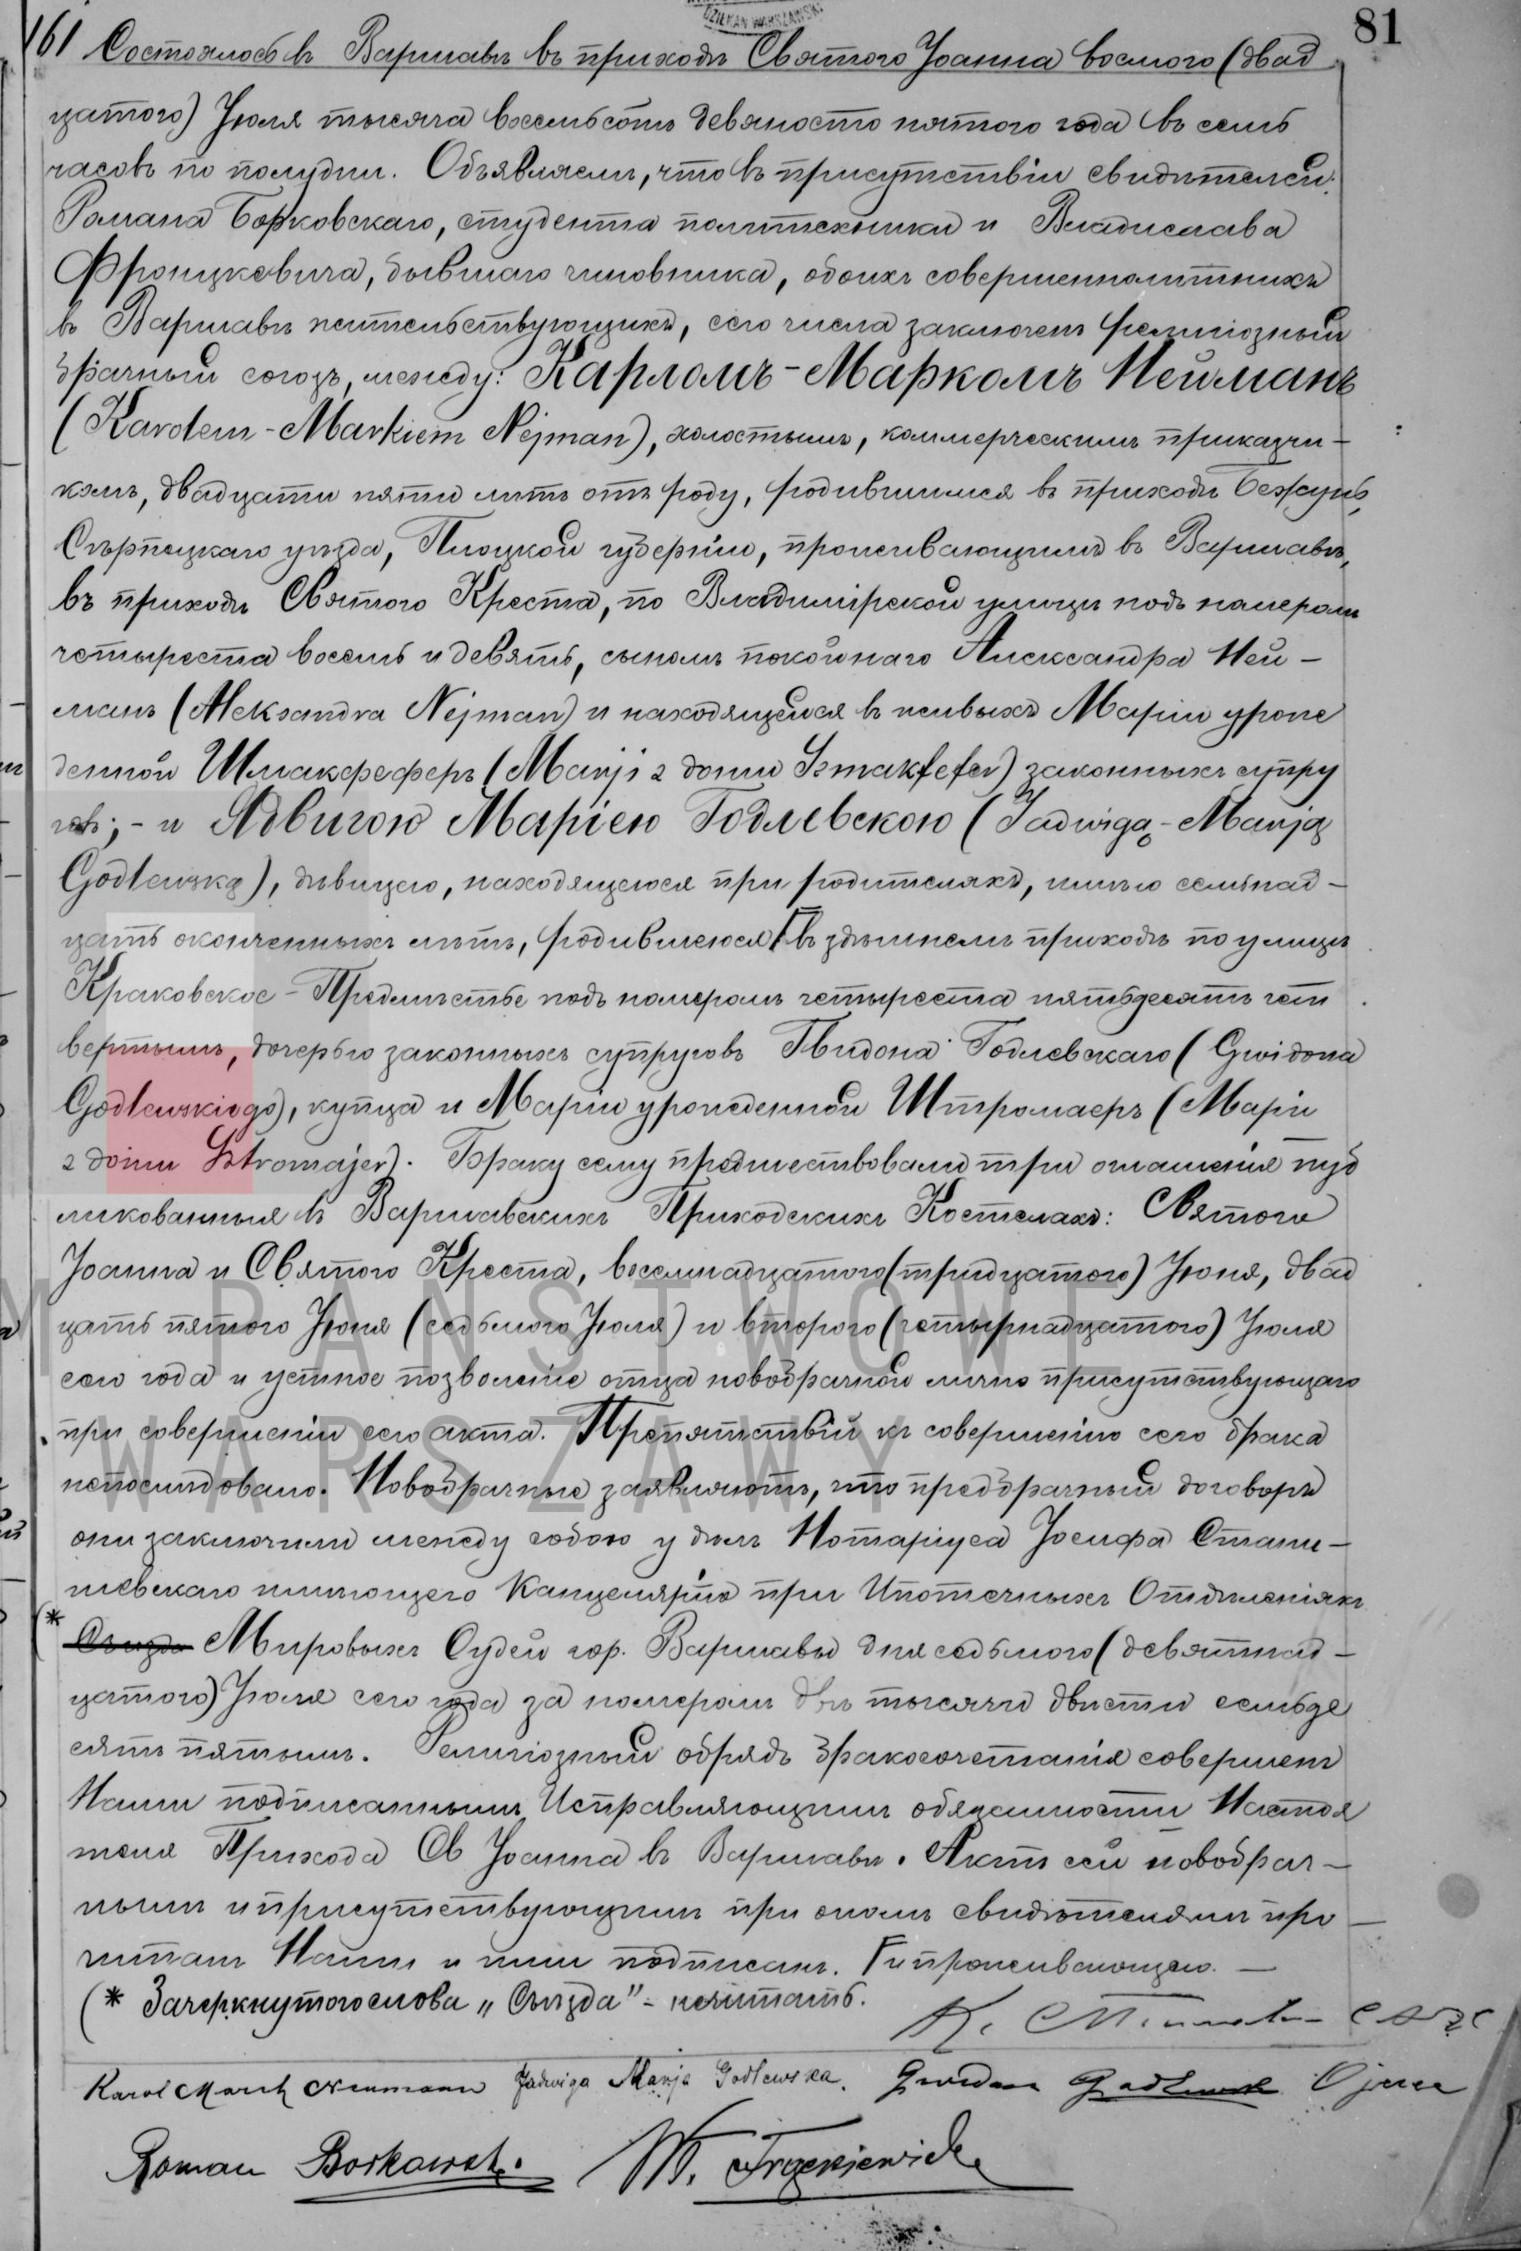 DZIEKAN WARSZAWSKI
81
161 Состоялось въ Варшавѣ въ приходѣ Святого Іоанна восмого (двад
цатого) Іюля тысяча восемьсотъ девяносто пятого года въ семь
часовъ по полудни. Объявляемъ, что въ присутствіи свидѣтелей:
Романа Борковскаго, студента политехники и Владислава
Фронцкевича, бывшаго чиновника, обоихъ совершеннолѣтнихъ
въ Варшавѣ жительствующихъ, сего числа заключенъ религіозный
брачный союзъ, между: Карломъ-Маркомъ Нейманъ
(Karolem-Markiem Nejman), холостымъ, коммерческимъ приказчи-
комъ, двадцати пяти лѣтъ отъ роду, родившимся въ приходѣ Бежунь,
Сѣрпецкаго уѣзда, Плоцкой губерніи, проживающимъ въ Варшавѣ,
въ приходѣ Святого Креста, по Владимірской улицѣ подъ номеромъ
четыреста восемь и девять, сыномъ покойнаго Александра Ней-
манъ (Aleksandra Nejman) и находящейся въ живыхъ Маріи урож
денной Шмакфеферъ (Marji z domu Szmakfefer) законныхъ супру
говъ; - и Ядвигою Маріею Годлевскою (Jadwigą-Marją
Godlewską), дѣвицею, находящеюся при родителяхъ, имѣю семьнад-
цать оконченныхъ лѣтъ, родившеюся Г въ здѣшнемъ приходѣ по улицѣ
Краковское-Предмѣстье подъ номеромъ четыреста пятьдесятъ чет
вертымъ, дочерью законныхъ супруговъ Гвидона Годлевскаго (Gwidona
Godlewskiego), купца и Маріи урожденной Штромаеръ (Маріи
z domu Sztromajer). Браку сему предшествовали три оглашенія пуб
ликованныя въ Варшавскихъ Приходскихъ Костелахъ: Святого
Іоанна и Святого Креста, восемнадцатого (тридцатого) Іюня, двад
цать пятого Іюня (седьмого Іюля) и второго (четырнадцатого) Іюля
сего года и устное позволеніе отца новобрачной лично присутствующаго
при совершеніи сего акта. Препятствій къ совершенію сего брака
непослѣдовало. Новобрачные заявляютъ, что предбрачный договоръ
они заключили между собою у дѣлъ Нотаріуса Іосифа Стани-
шевскаго имѣющего Канцелярію при Ипотечныхъ Отдѣленіяхъ
(* Съѣзда Мировыхъ Судей гор. Варшавы дня седьмого (девятнад-
цатого) Іюля сего года за номеромъ двѣ тысячи двѣсти семьде
сятъ пятымъ. Религіозный обрядъ бракосочетанія совершенъ
Нами подписаннымъ Исправляющимъ обязанности Настоя
теля Прихода Св Іоанна въ Варшавѣ. Актъ сей новобрач-
нымъ и присутствующимъ при ономъ свидѣтелямъ про-
читанъ Нами и ими подписанъ. Г и проживающею. -
(* Зачеркнутого слова „Съѣзда" - нечитать.
Karol Marek Neumann Jadwiga Marja Godlewska. Gwidon Godlewski Ojciec
Roman Borkowski. W. Frąckiewicz
M PAŃSTWOWE
WARSZAWY